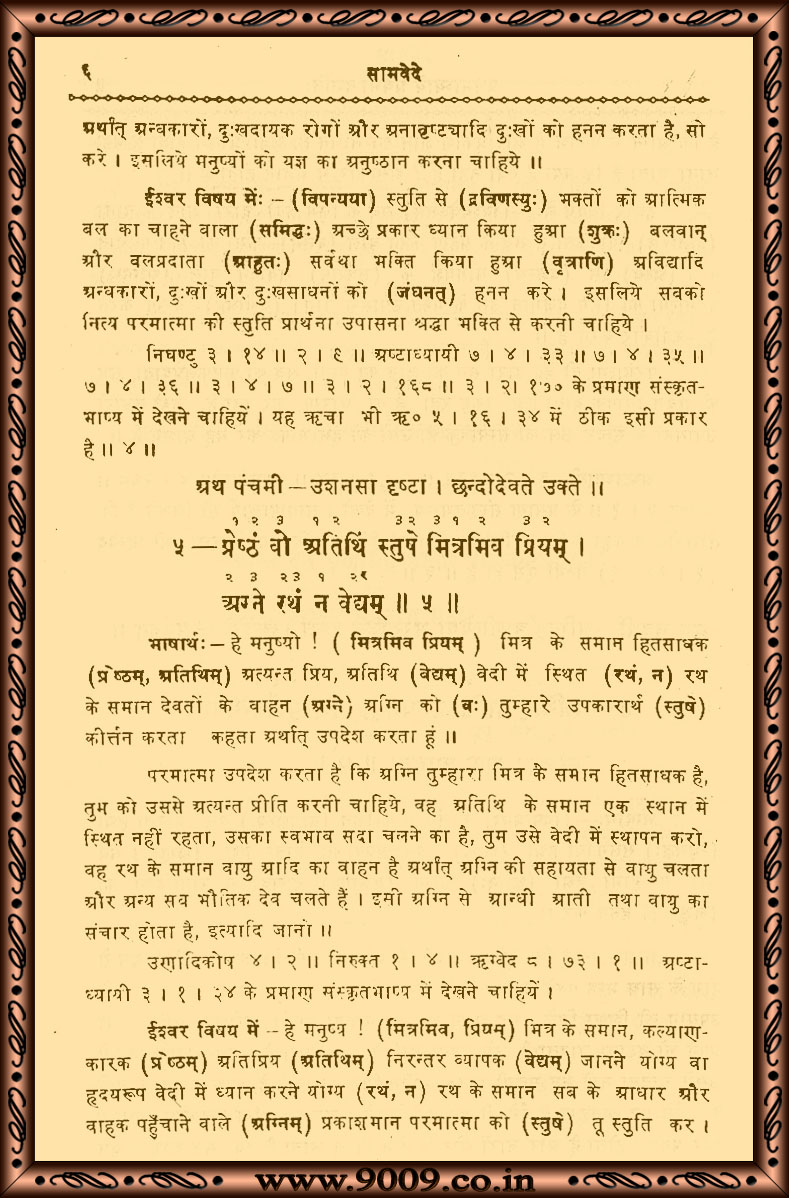 ६ सामवेदे
अर्थात् अन्धकारों, दुःखदायक रोगों और अनावृष्ट्यादि दुःखों को हनन करता है, सो
करे । इसलिये मनुष्यों को यज्ञ का अनुष्ठान करना चाहिये ॥
ईश्वर विषय में: – (विपन्यया) स्तुति से (द्रविणस्युः) भक्तों को आत्मिक
बल का चाहने वाला (समिद्धः) अच्छे प्रकार ध्यान किया हुआ (शुक्रः) बलवान्
और बलप्रदाता (आहुतः) सर्वथा भक्ति किया हुआ (वृत्राणि) अविद्यादि
अन्धकारों, दुःखों और दुःखसाधनों को (जंघनत्) हनन करे । इसलिये सबको
नित्य परमात्मा की स्तुति प्रार्थना उपासना श्रद्धा भक्ति से करनी चाहिये ।
निघण्टु ३ । १४ ॥ २ । ९ ॥ अष्टाध्यायी ७ । ४ । ३३ ॥ ७ । ४ । ३५ ॥
७ । ४ । ३६ ॥ ३ । ४ । ७ ॥ ३ । २ । १६८ ॥ ३ । २। १७० के प्रमाण संस्कृत-
भाष्य में देखने चाहियें । यह ऋचा भी ऋ० ५ । १६ । ३४ में ठीक इसी प्रकार
है ॥ ४ ॥
अथ पंचमी – उशनसा दृष्टा । छन्दोदेवते उक्ते ॥
१ २ ३ १ २ ३२ ३ १ २ ३ २
५ – प्रेष्ठं वो अतिथिं स्तुषे मित्रमिव प्रियम् ।
२ ३ २३ १ २र
अग्ने रथं न वेद्यम् ॥ ५ ॥
भाषार्थः – हे मनुष्यो ! ( मित्रमिव प्रियम् ) मित्र के समान हितसाधक
(प्रेष्ठम्, अतिथिम्) अत्यन्त प्रिय, अतिथि (वेद्यम्) वेदी में स्थित (रथं, न) रथ
के समान देवतों के वाहन (अग्ने) अग्नि को (वः) तुम्हारे उपकारार्थ (स्तुषे)
कीर्त्तन करता कहता अर्थात् उपदेश करता हूं ॥
परमात्मा उपदेश करता है कि अग्नि तुम्हारा मित्र के समान हितसाधक है,
तुम को उससे अत्यन्त प्रीति करनी चाहिये, वह अतिथि के समान एक स्थान में
स्थित नहीं रहता, उसका स्वभाव सदा चलने का है, तुम उसे वेदी में स्थापन करो,
वह रथ के समान वायु आदि का वाहन है अर्थात् अग्नि की सहायता से वायु चलता
और अन्य सब भौतिक देव चलते हैं । इसी अग्नि से आन्धी आती तथा वायु का
संचार होता है, इत्यादि जानो ॥
उणादिकोष ४ । २ ॥ निरुक्त १ । ४ ॥ ऋग्वेद ८ । ७३ । १ ॥ अष्टा-
ध्यायी ३ । १ । ३४ के प्रमाण संस्कृतभाष्य में देखने चाहियें ।
ईश्वर विषय में – हे मनुष्य ! (मित्रमिव, प्रियम्) मित्र के समान, कल्याण-
कारक (प्रेष्ठम्) अतिप्रिय (अतिथिम्) निरन्तर व्यापक (वेद्यम्) जानने योग्य वा
हृदयरूप वेदी में ध्यान करने योग्य (रथं, न) रथ के समान सब के आधार और
वाहक पहुँचाने वाले (अग्निम्) प्रकाशमान परमात्मा को (स्तुषे) तू स्तुति कर ।
www.9009.co.in